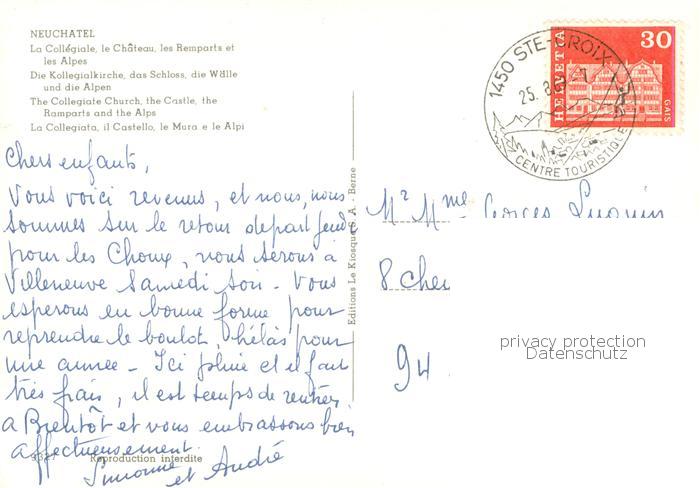 NEUCHATEL
La Collégiale, le Château, les Remparts et
les Alpes
Die Kollegialkirche, das Schloss, die Wälle
und die Alpen
The Collegiate Church, the Castle, the
Ramparts and the Alps
La Collegiata, il Castello, le Mura e le Alpi
Chers enfants,
Vous voici revenus, et nous, nous
sommes sur le retour départ jeudi
pour les Choux, nous serons à
Villeneuve Samedi soir - Vous
esperons en bonne forme pour
reprendre le boulot, hélas pour
une année - Ici pluie et il fait
très frais, il est temps de rentrer
a Bientôt et vous embrassons bien
affectueusement.
Simonne
et André
Reproduction interdite
Editions Le Kiosque S. A. - Berne
1450 STE-CROIX
25. 8.
CENTRE TOURISTIQUE
HELVETIA
30
GAIS
Mr Mme Georges
8 Chem
94
privacy protection
Datenschutz